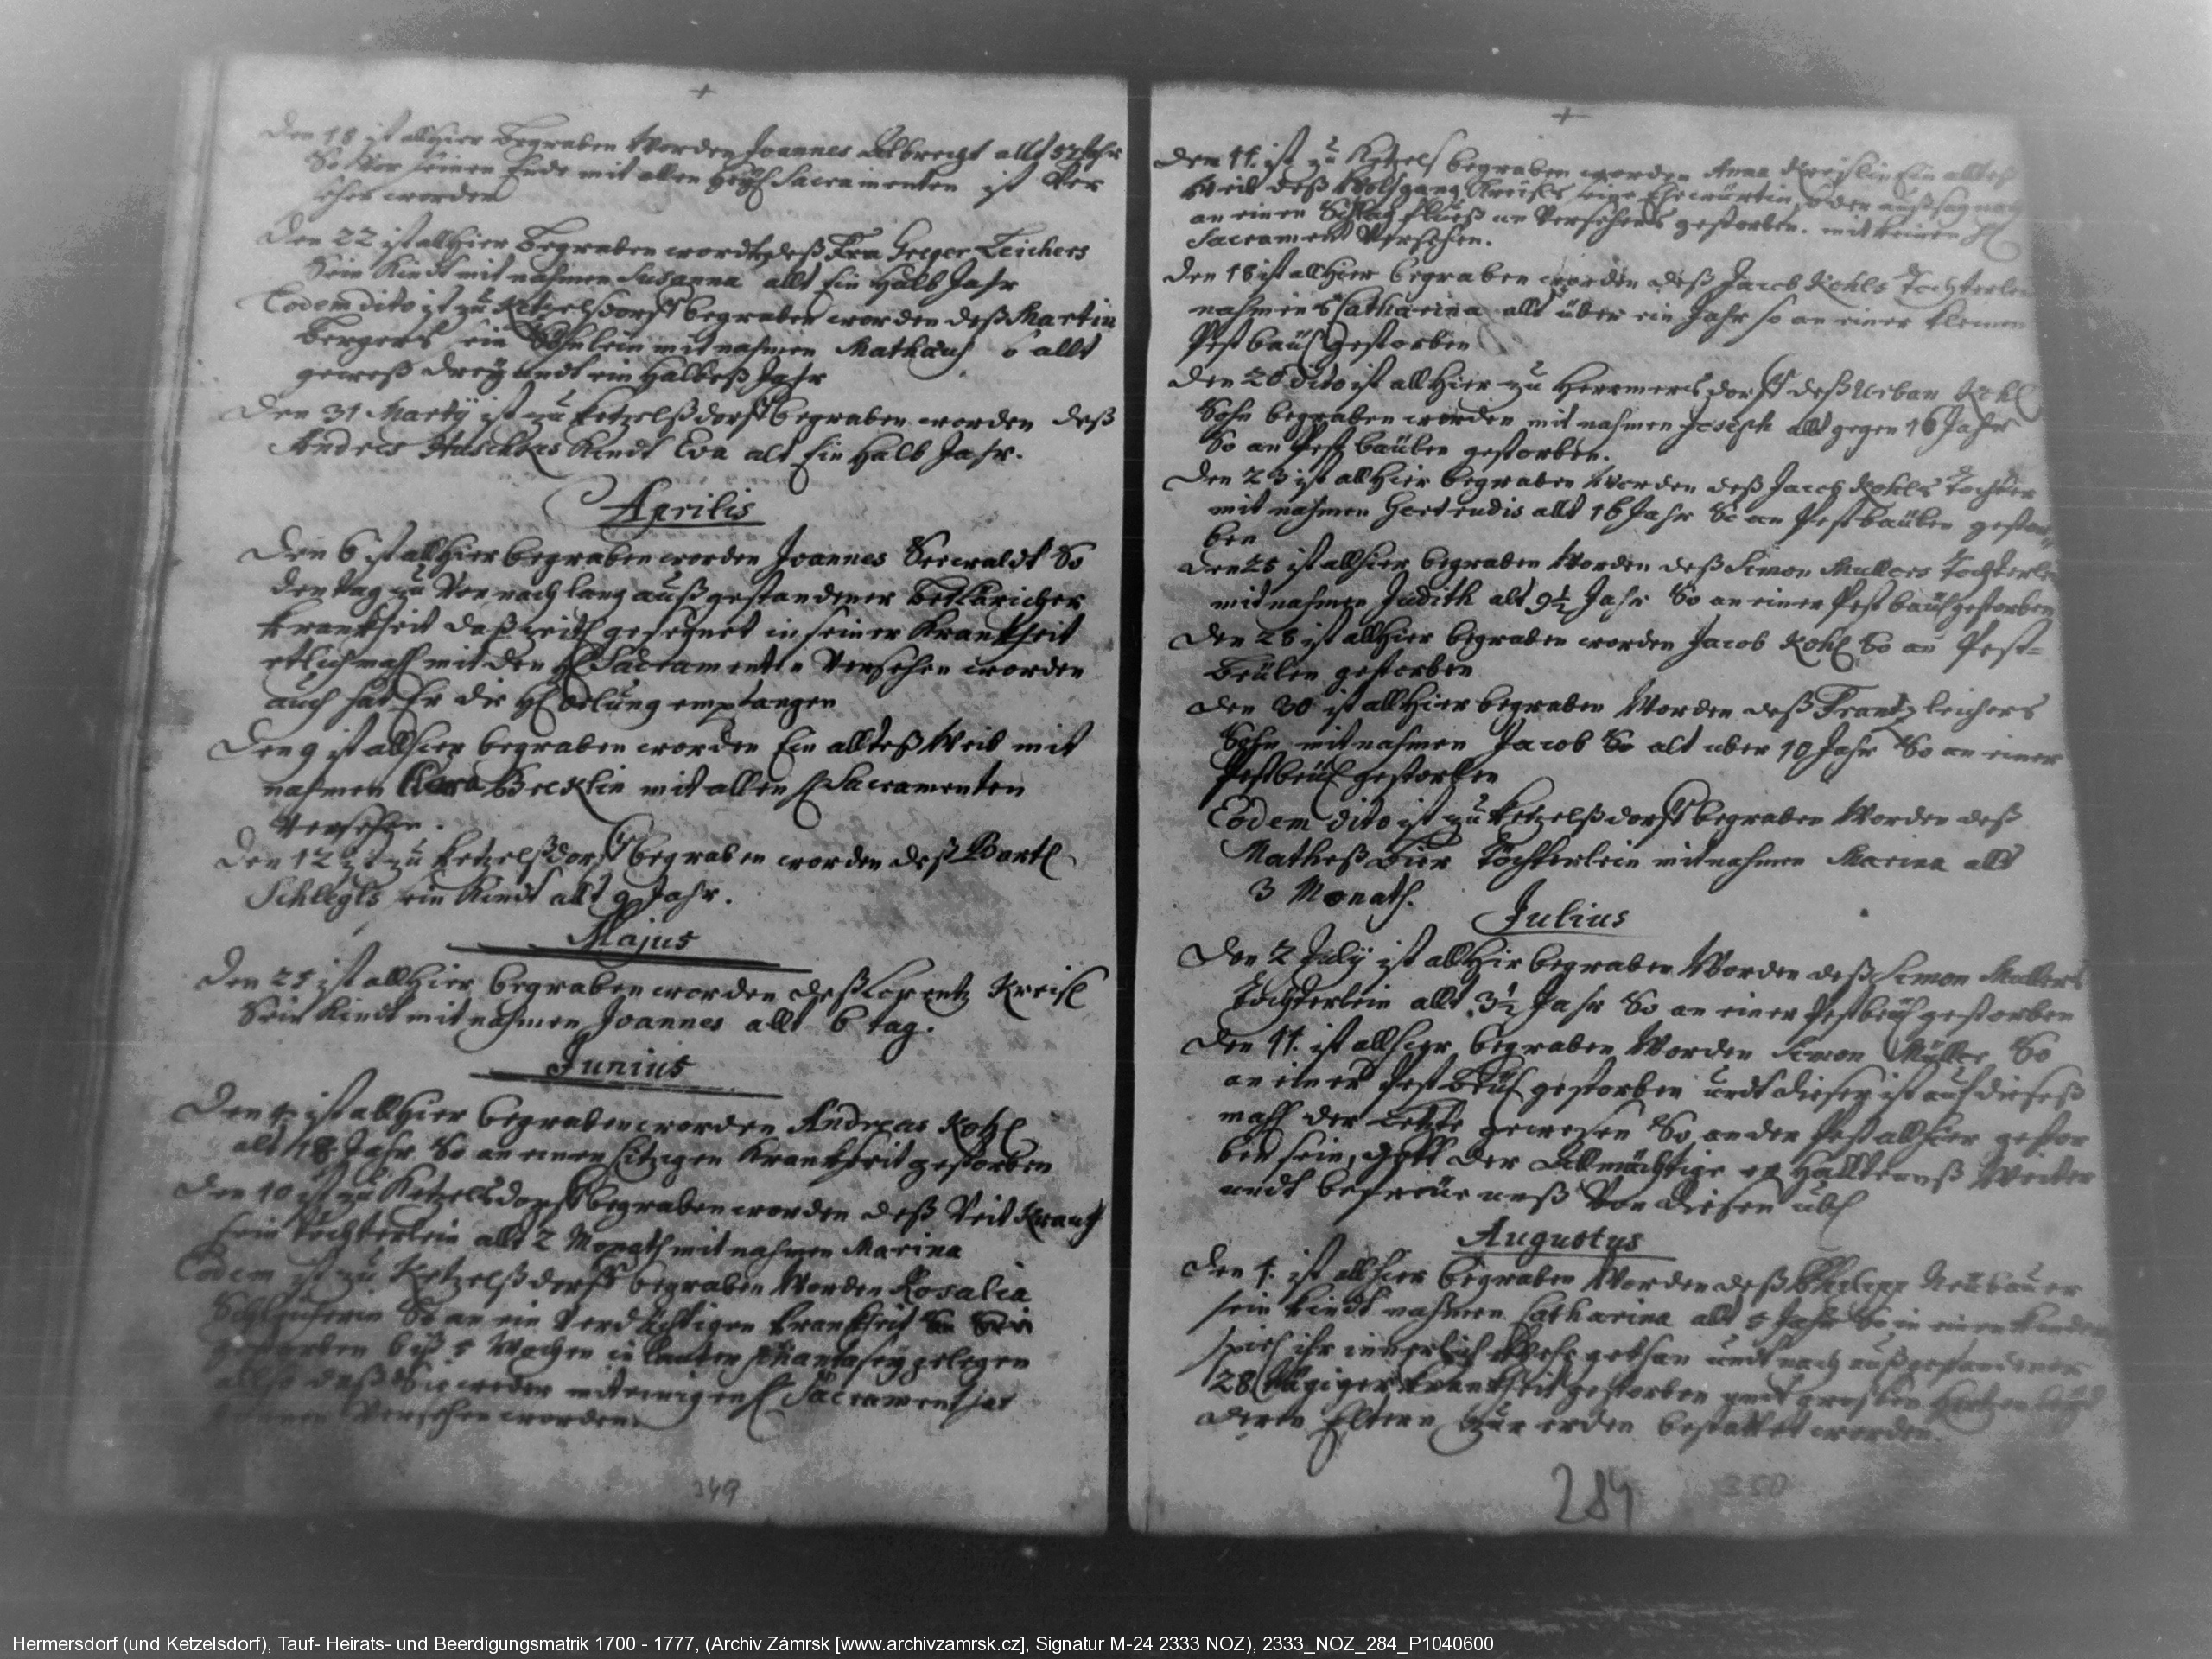 +
Den 18 ist allhier Begraben Worden Joannes Albrecht allt 57 Jahr
So Vor seinen Ende mit allen Sacramenten ist Ver
sehen worden
Den 22 ist allhier Begraben deß Greger Leichers
Sein Kindt mit nahmen Susanna allt Ein Halb Jahr
Eodem dito ist zu Ketzelßdorff begraben worden deß Martin
Bergers sein Söhnlein mit nahmen allt
geweß drey undt ein Halbeß Jahr
Den 31 Marty ist zu Ketzelßdorff begraben worden deß
Andres Kindt Eva alt Ein Halb Jahr.
Aprilis
Den 6 ist allhier begraben worden Joannes Seewaldt So
den tag zu Vor nach lang außgestandener
Krankheit daß zeitl gesegnet in seiner Krankheit
etlichmahl mit den Sacramenten Versehen worden
auch hat Er die Hl oelung empfangen
Den 9 ist allhier begraben worden Ein allteß Weib mit
nahmen mit allen Sacramenten
Versehen.
Den 12 ist zu Ketzelßdorff begraben worden deß Bartl
Schlegls ein Kindt allt 9 Jahr.
Majus
Den 25 ist allhier begraben worden deß Lorentz Kreisl
Sein Kindt mit nahmen Joannes allt 6 tag.
Junius
Den ist allhier begraben worden Andreas Kohl
alt 18 Jahr So an einer hitzigen Krankheit gestorben
Den 10 ist zu Ketzelsdorff begraben worden deß Veit
sein Töchterlein allt 2 Monath mit nahmen Marina
Eodem ist zu Ketzelßdorff begraben Worden Rosalia
So an ein Verdächtigen Krankheit
gestorben biß 5 Wochen in lauter phantasey gelegen
allso daß Sie weder mit einigen Sacrament
Versehen worden
349
+
Den 11. ist zu Ketzels begraben worden Anna Kreislin Ein alltes
Weib deß Wolfgang Kreisls seine Ehewürtin
an einen Schlag fluß gestorben. mit keinen
Sacrament Versehen.
Den 18 ist allhier begraben worden deß Jacob Kohls Töchterlein
nahmens Catharina allt über ein Jahr so an einer
Pest baül gestorben
Den 20 dito ist allhier zu Herrmersdorff deß Urban Kohl
Sohn begraben worden mit nahmen Joseph allt gegen 16 Jahr
So an Pest baülen gestorben.
Den 23 ist allhier begraben Worden deß Jacob Kohls Tochter
mit nahmen Gertrudis allt 16 Jahr So an Pest baülen gestor
ben
Den 25 ist allhier begraben Worden deß Simon Mullers Töchterlein
mit nahmen Judith alt 9½ Jahr So an einer Pest baül gestorben
Den 28 ist allhier begraben worden Jacob Kohl So an Pest=
Beülen gestorben
Den 30 ist allhier begraben Worden deß Frantz leichers
Sohn mit nahmen Jacob So alt uber 10 Jahr So an einer
Pestbeül gestorben
Eodem dito ist zu Ketzelßdorff begraben Worden deß
Matheß Töchterlein mit nahmen Marina allt
3 Monath.
Julius
Den 2 July ist allhir begraben Worden deß Simon Mullers
Töchterlein allt 3½ Jahr So an einer Pestbeül gestorben
Den 11. ist allhier begraben Worden Simon Müller So
an einer Pest Beül gestorben undt dieser ist auf dieseß
mahl der Letzte gewesen So an der Pest allhier gestor
ben sein, Gott der Allmächtige er Hallte unß Weiter
undt befreüe unß Von diesen übl
Augustus
Den ist allhier begraben Worden deß Philipp Neübauer
sein Kindt nahmen Catharina allt 5 Jahr So in einen
spiel ihr innerlich Wehe gethan undt nach außgestandener
28 tägiger Krankheit gestorben undt grosten Hertzen leyd
deren Eltern Zur erden bestattet worden.
284
350
Hermersdorf (und Ketzelsdorf), Tauf- Heirats- und Beerdigungsmatrik 1700 - 1777, (Archiv Zámrsk [www.archivzamrsk.cz], Signatur M-24 2333 NOZ), 2333_NOZ_284_P1040600